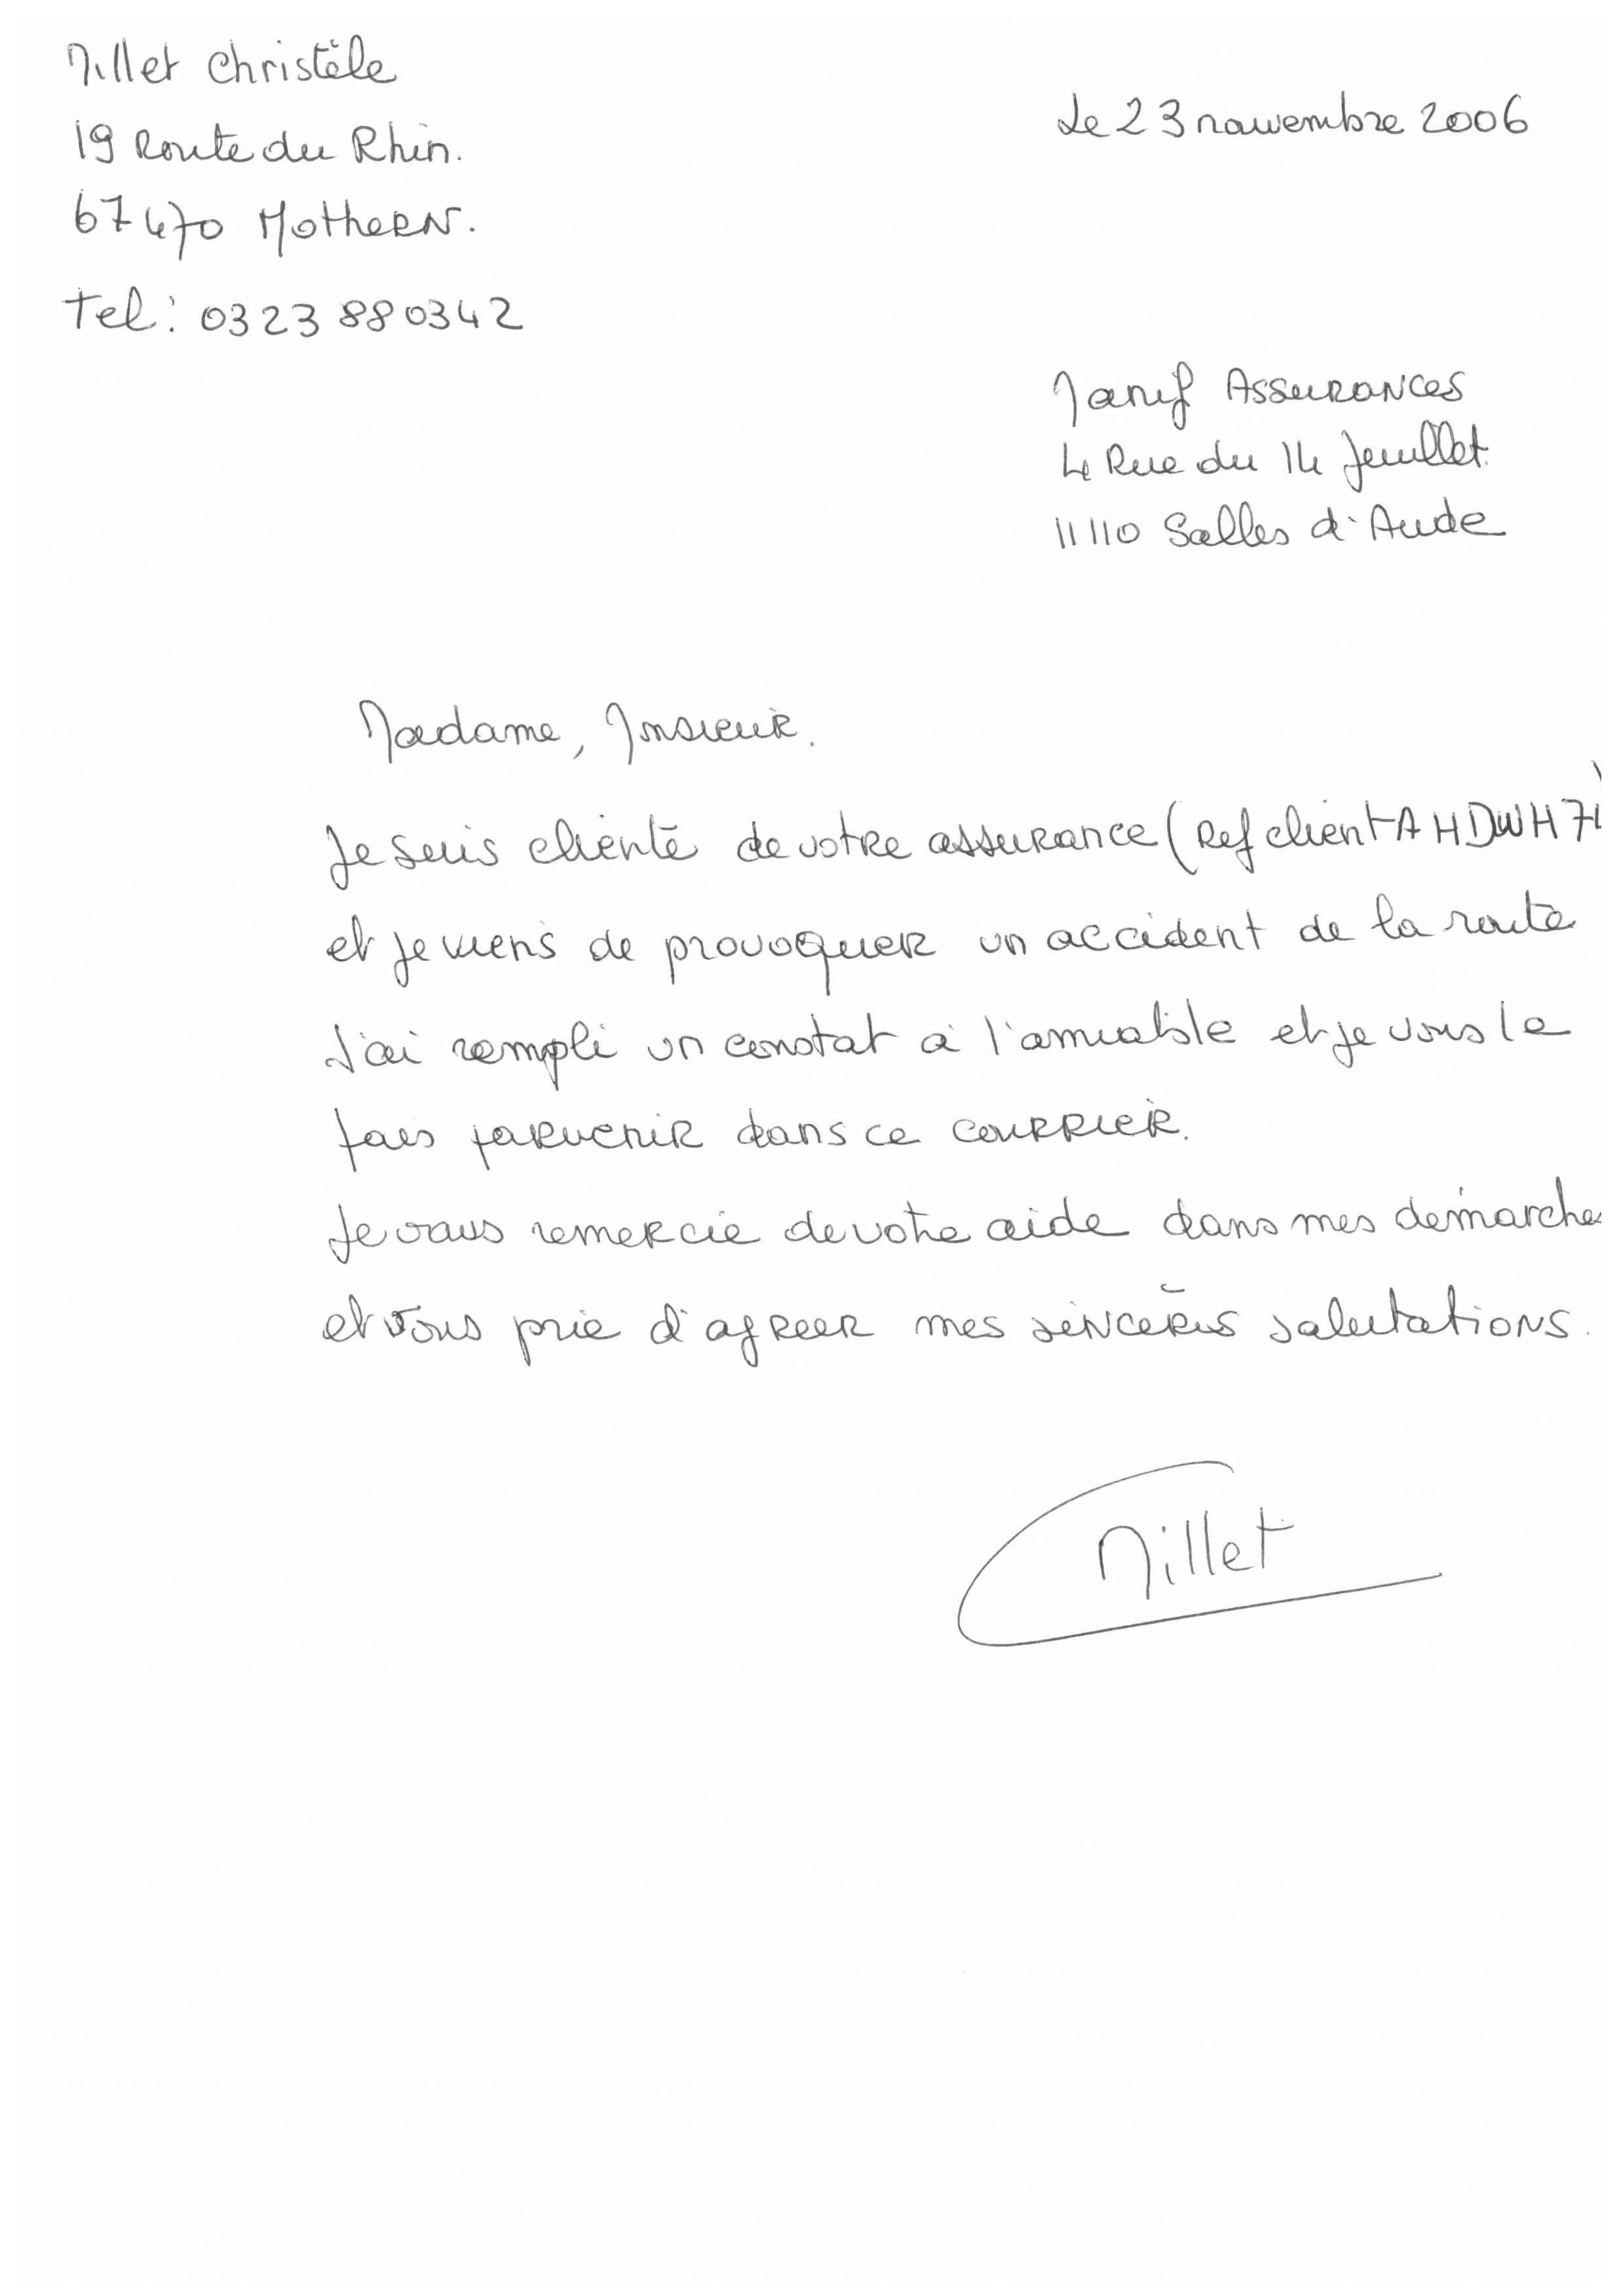 Millet Christèle
19 Route du Rhin.
67470 Mothern.
Tel: 0323880342
Le 23 novembre 2006
Manif Assurances
4 Rue du 14 Juillet
11110 Salles d'Aude
Madame, Monsieur.
Je suis cliente de votre assurance (Ref client AHDWH71)
et je viens de provoquer un accident de la route
J'ai rempli un constat à l'amiable et je vous le
fais parvenir dans ce courrier.
Je vous remercie de votre aide dans mes démarches
et vous prie d'agreer mes sincères salutations.
Millet